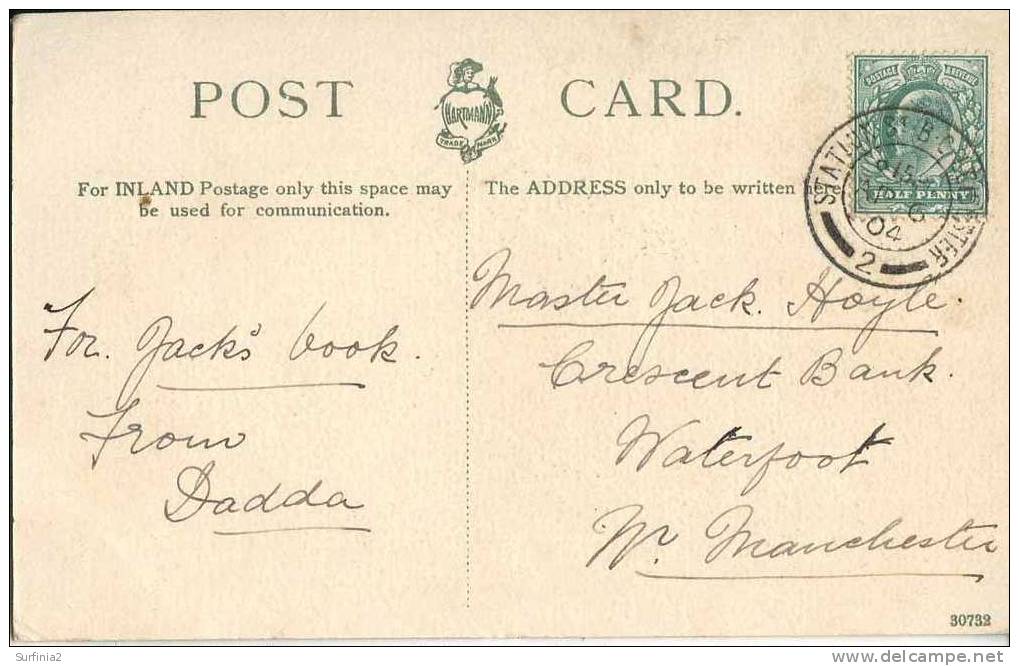 POST CARD.
HARTMANN
TRADE MARK
For INLAND Postage only this space may
be used for communication.
The ADDRESS only to be written here
POSTAGE REVENUE
HALF PENNY
STATION St B.O.
8 15
04
2
For Jack's book.
From
Dadda
Master Jack Hoyle.
Crescent Bank.
Waterfoot
Nr. Manchester
30732
Surfinia2
delcampe.net